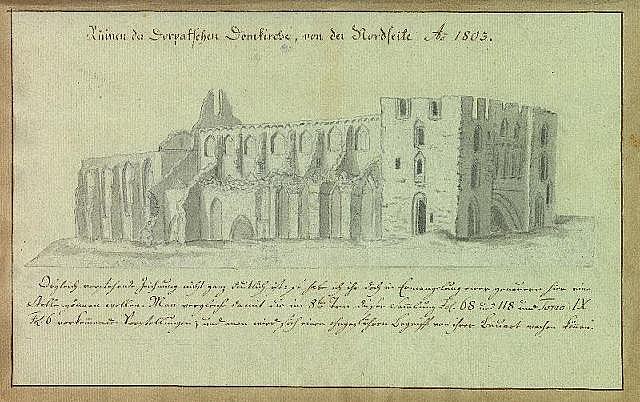 Ruinen der Dorpatschen Domkirche, von der Nordseite Ao 1803.
Obgleich vorstehende Zeichnung nicht ganz deutlich ist, so habe ich ihr doch in Ermangelung einer genauern hier eine
Stelle gönnen wollen. Man vergleiche damit die im 8ten Tom dieser Sammlung Fol. 08 und 118 und Tomo IX
Fol 6 vorkommende Vorstellungen, und man wird sich einen ohngefähren Begriff von ihrer Bauart machen können.